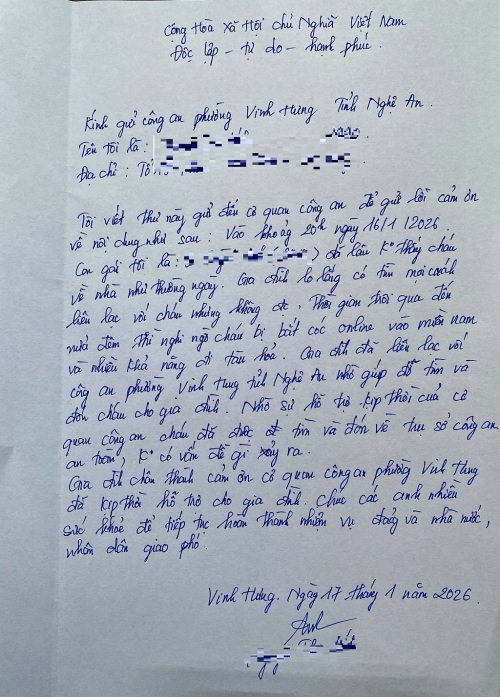 Cộng Hòa Xã Hội chủ Nghĩa Việt Nam
Độc lập - tự do - hạnh phúc.
Kính gửi công an phường Vinh Hưng Tỉnh Nghệ An.
Tên tôi là :
Địa chỉ : Tổ
Tôi viết thư này gửi đến cơ quan công an để gửi lời cảm ơn
về nội dung như sau : Vào khoảng 20h ngày 16/1/2026.
Con gái tôi là : ) đã lâu K° thấy cháu
về nhà như thường ngày. Gia đình lo lắng có tìm mọi cách
liên lạc với cháu nhưng không đc. Thời gian trôi qua đến
nửa đêm thì nghi ngờ cháu bị bắt cóc online vào miền nam
và nhiều khả năng đi tàu hỏa. Gia đình đã liên lạc với
công an phường Vinh Hưng tỉnh Nghệ An nhờ giúp đỡ tìm và
đón cháu cho gia đình. Nhờ sự hỗ trợ kịp thời của cơ
quan công an cháu đã được tìm và đón về trụ sở công an
an toàn, K° có vấn đề gì xảy ra.
Gia đình chân thành cảm ơn cơ quan công an phường Vinh Hưng
đã kịp thời hỗ trợ cho gia đình. Chúc các anh nhiều
sức khỏe để tiếp tục hoàn thành nhiệm vụ đảng và nhà nước,
nhân dân giao phó.
Vinh Hưng. Ngày 17 tháng 1 năm 2026.